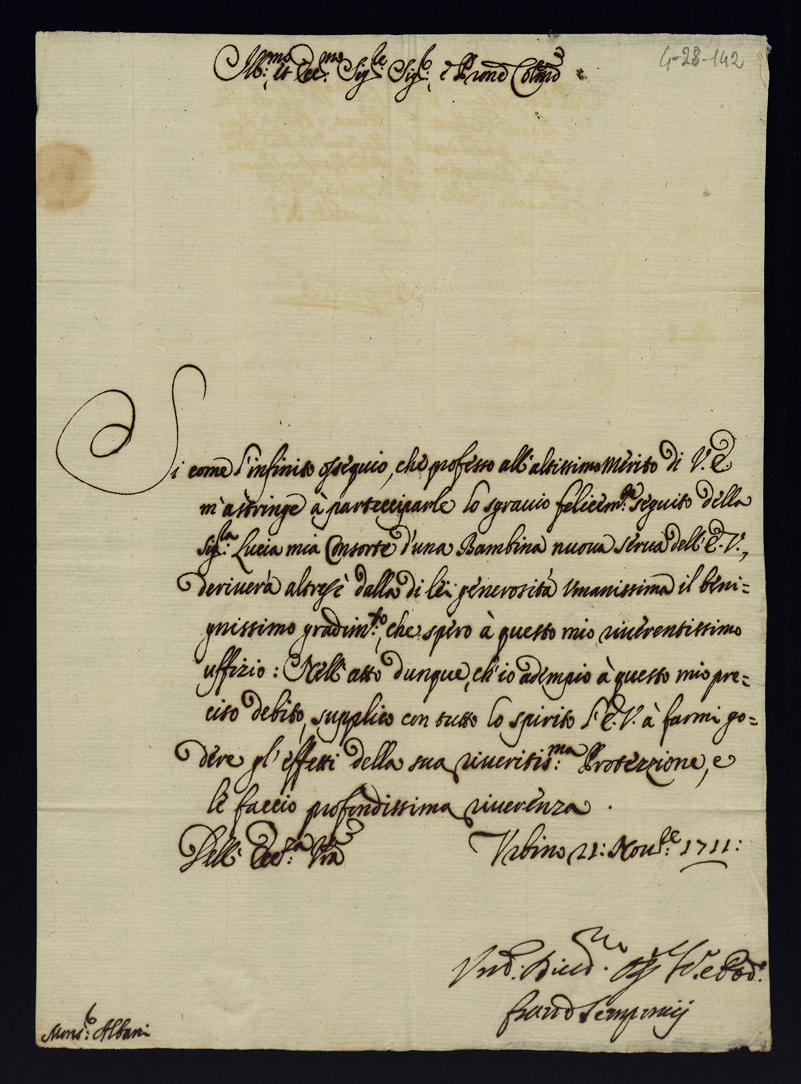 Ill:mo et Ecc:mo Sig:re Sig:re e Prone Colmo
4-28-142
Si come l'infinito ossequio, che professo all'altissimo merito di V. E
m'astringe à parteciparle lo sgrauio felicem:te seguito della
Sig:ra Lucia mia Consorte d'una Bambina nuoua serua dell'E. V.,
deriuerà altresì dalla di lei generosità Vmanissima il beni=
gnissimo gradim:to, che spero à questo mio riuerentissimo
uffizio: Nell'atto dunque, ch'io adempio à questo mio pre=
ciso debito, supplico con tutto lo spirito l'E. V. à farmi go=
dere gl'effetti della sua riueritis:ma Protezzione, e
le faccio profondissima riuerenza.
Dell' Ecc:a Vra
Vrbino 21: Nou:re 1711:
Vmo. Diuo. Se
Franco Sempronij
Mons:r Albani